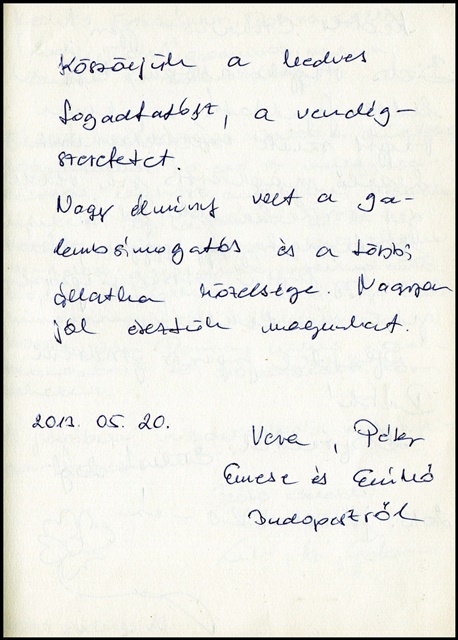 Köszönjük a kedves
fogadtatást, a vendég-
szeretetet.
Nagy élmény volt a ga-
lambsimogatás és a többi
állatka közelsége. Nagyon
jól éreztük magunkat.
2013. 05. 20.
Vera, Péter
Emese és Enikő
Budapestről